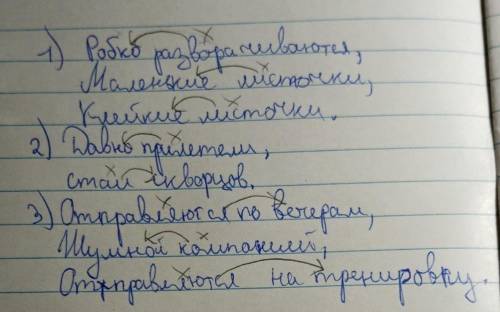 1) Робко разворачиваются,
Маленькие листочки,
Клейкие листочки.
2) Давно прилетели,
стаи скворцов.
3) Отправляются по вечерам,
Шумной компанией,
Отправляются на тренировку.